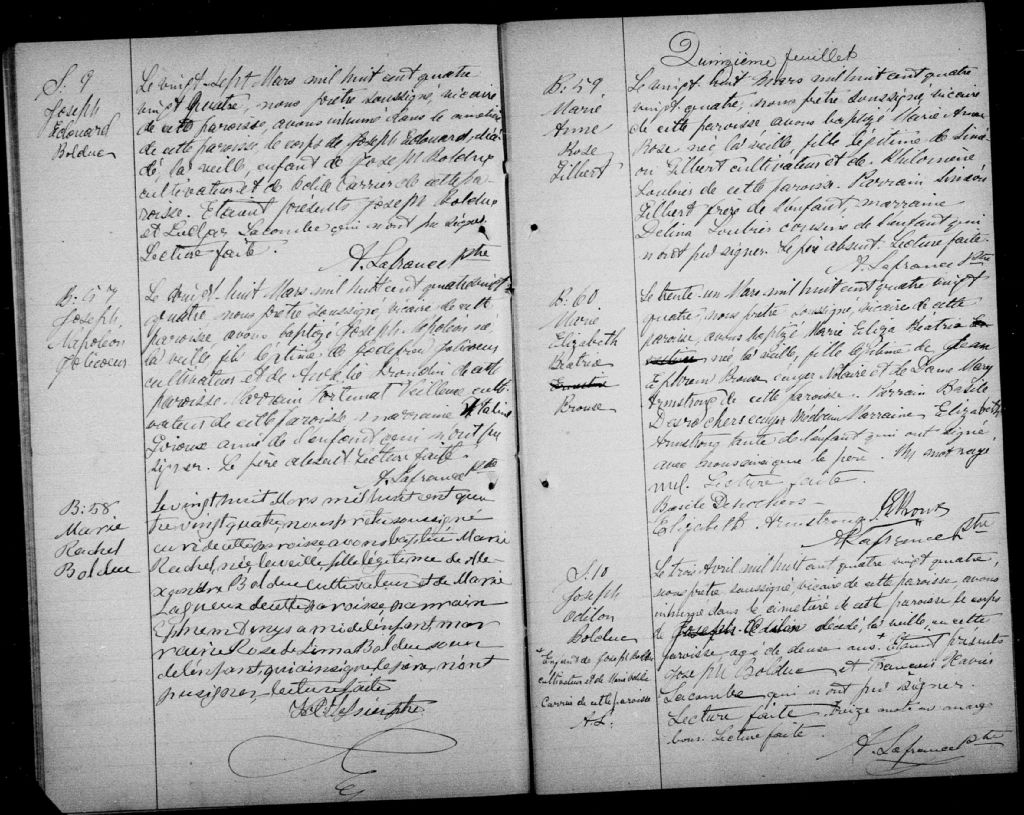 S. 9
Joseph
Edouard
Bolduc
Le vingt-sept Mars mil huit cent quatre
vingt quatre, nous prêtre soussigné, vicaire
de cette paroisse, avons inhumé dans le cimetière
de cette paroisse, le corps de Joseph Edouard, décé-
dé, la veille, enfant de Joseph Bolduc
cultivateur et de Odile Carrier de cette pa-
roisse. Etaient présents Joseph Bolduc
et Ludger Lacombe qui n'ont pu signer.
Lecture faite.
A. Lafrance Ptre
B. 57
Joseph
Napoléon
Jolicoeur
Le vingt-huit Mars mil huit cent quatre vingt
quatre nous prêtre soussigné, vicaire de cette
paroisse avons baptizé Joseph Napoléon né
la veille, fils légitime de Godefroi Jolicoeur
cultivateur et de Rondin de cette
paroisse. Parrain Fortunat Veilleux culti-
vateur de cette paroisse; marraine
Giroux amie de l'enfant qui n'ont pu
signer. Le père absent. Lecture faite.
A. Lafrance Ptre
B. 58
Marie
Rachel
Bolduc
Le vingt huit Mars mil huit cent qua
tre vingt quatre, nous prêtre soussigné
curé de cette paroisse avons baptisé Marie
Rachel, née la veille, fille légitime de Ale-
xandre Bolduc cultivateur et de Marie
Lagueux de cette paroisse, parrain
Ephrem ami de l'enfant mar
raine Rose de Lima Bolduc soeur
de l'enfant, qui ainsi que le père, n'ont
pu signer lecture faite
Ptre
Quinzième feuillet
B. 59
Marie
Anne
Rose
Gilbert
Le vingt huit Mars mil huit cent quatre
vingt quatre, nous prêtre soussigné, vicaire
de cette paroisse avons baptizé Marie Anne
Rose née la veille, fille légitime de Simé-
on Gilbert cultivateur et de Philomène
Loubier de cette paroisse. Parrain Siméon
Gilbert frère de l'enfant marraine
Delina Loubier cousine de l'enfant qui
n'ont pu signer. Le père absent. Lecture faite.
A. Lafrance Ptre
B. 60
Marie
Elizabeth
Béatrix
Brousse
Le trente-un Mars mil huit cent quatre vingt
quatre, nous prêtre soussigné, vicaire de cette
paroisse, avons baptizé Marie Eliza Béatrix
née la veille, fille légitime de Jean
Ephrem Brousse écuyer Notaire et de Dame Mary
Armstrong de cette paroisse. Parrain Basile
Desrochers écuyer Marraine Elizabeth
Armstrong tante de l'enfant qui ont signé,
avec nous ainsi que le père. Un mot rayé
nul. Lecture faite.
Basile Desrochers
Elizabeth Armstrong
A. Lafrance Ptre
S. 10
Joseph
Odilon
Bolduc
+ Enfant de Joseph Bolduc
cultivateur et de Marie Odile
Carrier de cette paroisse
A.L.
Le trois Avril mil huit cent quatre vingt quatre,
nous prêtre soussigné, vicaire de cette paroisse avons
inhumé dans le cimetière de cette paroisse le corps
de Joseph Odilon décédé, la veille, en cette
paroisse, agé de deux ans. + Etaient présents
Joseph Bolduc et François Xavier
Lacombe qui n'ont pu signer.
Lecture faite. Treize mots en marge
bons. Lecture faite.
A. Lafrance Ptre